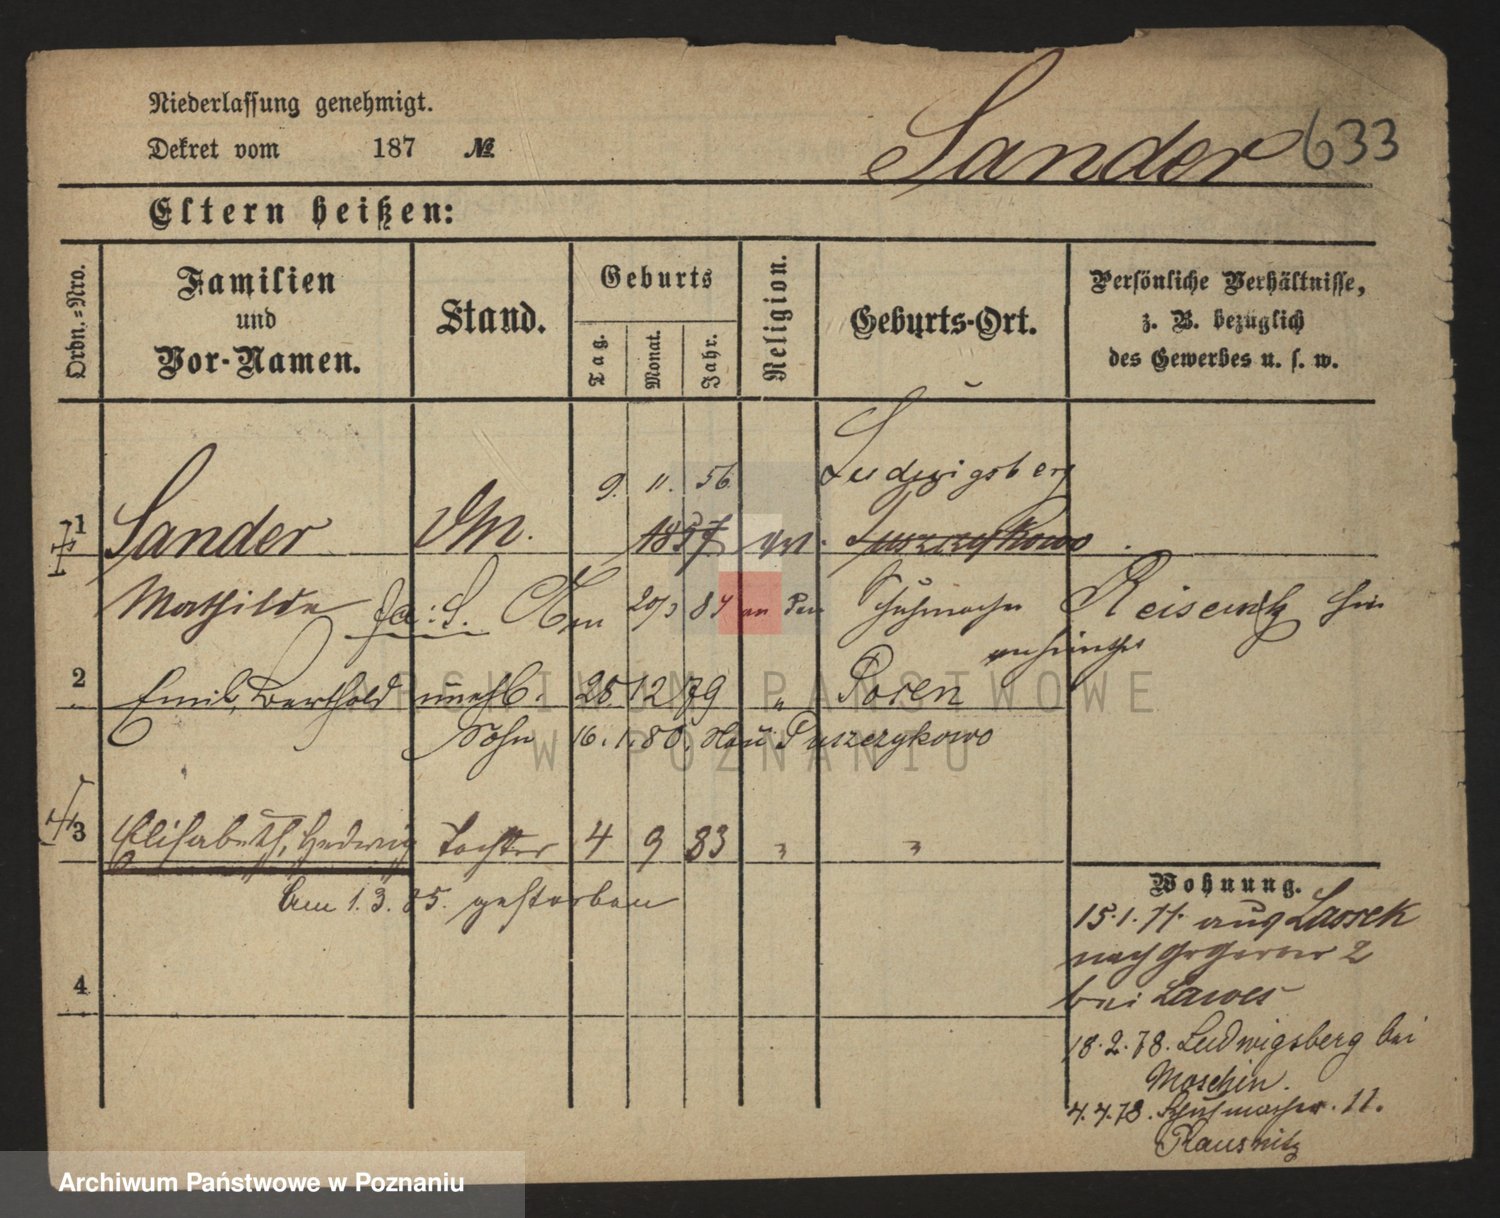 Niederlassung genehmigt.
Dekret vom 187 №
Sander 633
Eltern heißen:
Ordn.-Nro.
Familien
und
Vor-Namen.
Stand.
Geburts
Tag.
Monat.
Jahr.
Religion.
Geburts-Ort.
Persönliche Verhältnisse,
z. B. bezüglich
des Gewerbes u. s. w.
Ludwigsberg
9. 11. 56
1 Sander 1857 Puszczykowo
Mathilde 20/3 84 Reisewitz
2 Emil, Berthold unehl. 25 12 79 " Posen
Sohn 16. 1. 80. Puszczykowo
3 Elisabeth, Hedwig Tochter 4 9 83 " "
Am 1. 3. 85. gestorben
4
Wohnung.
15. 1. 77. aus Lassek
nach Gr Gerber 2
bei Lawes
18. 2. 78. Ludwigsberg bei
Moschin.
4. 4. 78. Schuhmacher. 11.
ARCHIWUM PAŃSTWOWE
W POZNANIU
Archiwum Państwowe w Poznaniu